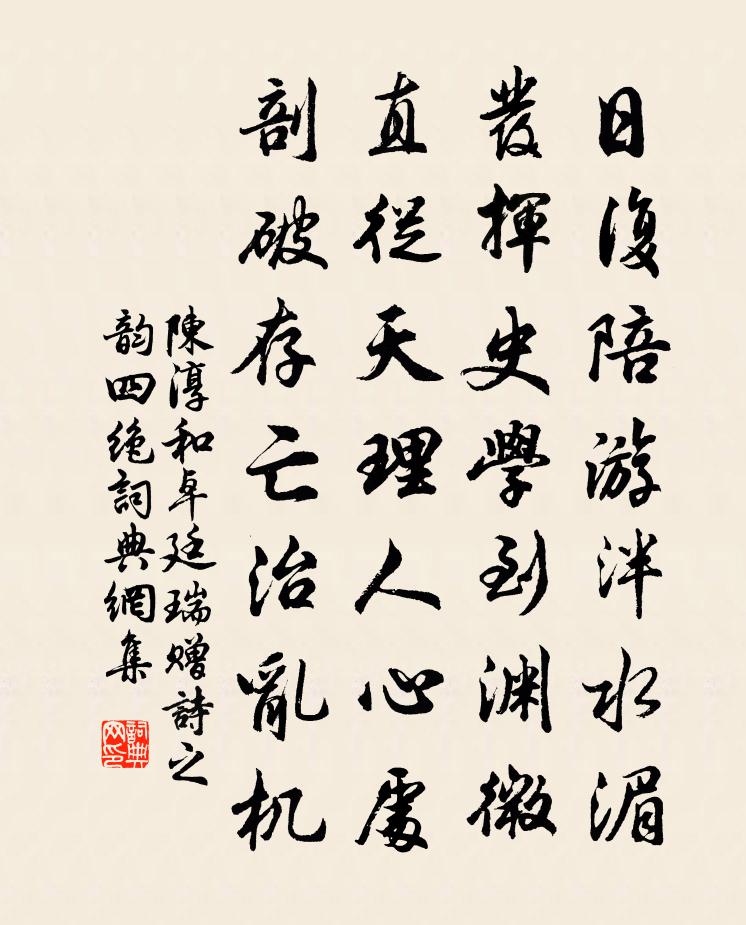 日復陪游泮水湄
發揮史學到渊微
直從天理人心處
剖破存亡治亂机
陳淳和卓廷瑞赠詩之
韵四绝詞典網集
詞典网印